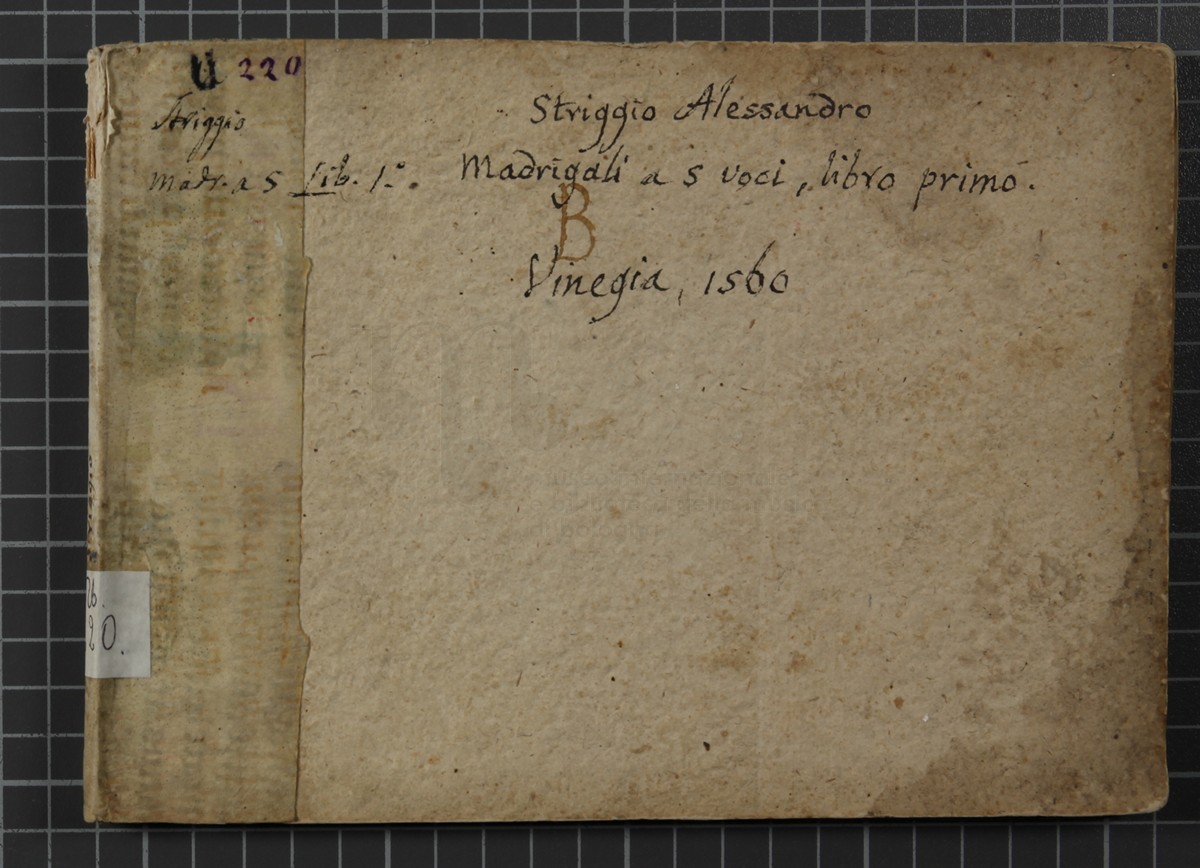 U 220
Striggio
Madr. a 5 Lib. 1.º
Striggio Alessandro
Madrigali a 5 voci, libro primo.
B
Vinegia, 1560
26.
20.